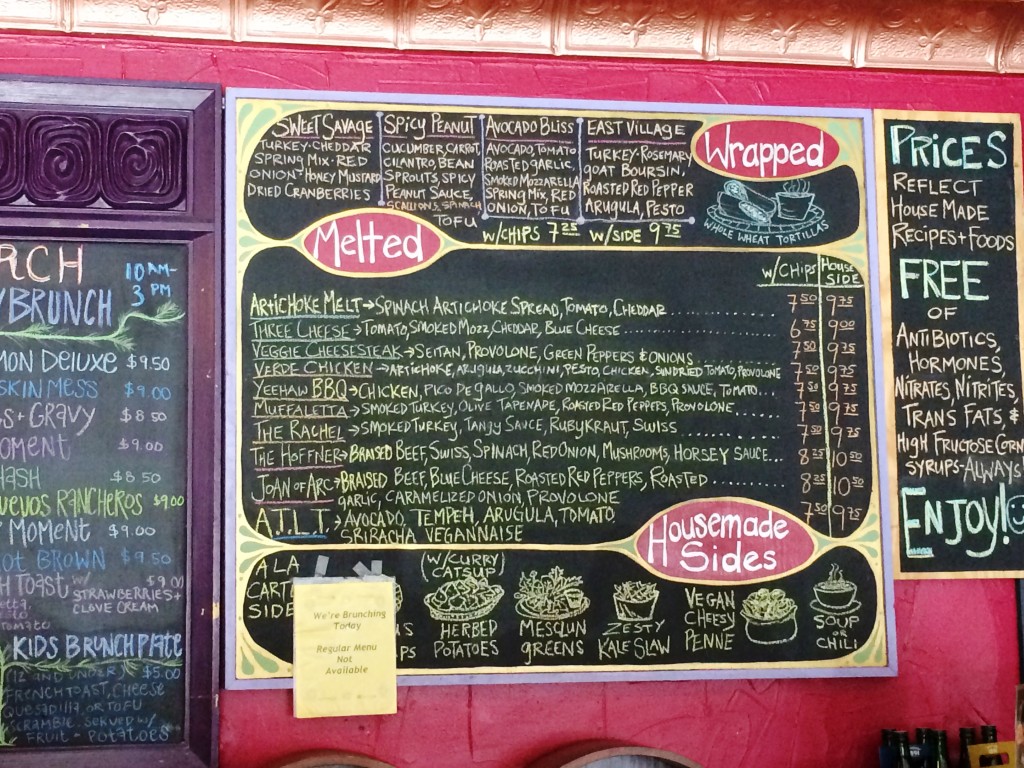 RCH
BRUNCH
10 AM-
3 PM
MON DELUXE $9.50
SKIN MESS $9.00
S + GRAVY $8.50
OMENT $9.00
HASH $8.50
UEVOS RANCHEROS $9.00
MOMENT $9.00
OT BROWN $9.50
H TOAST W/ $9.00
STRAWBERRIES +
CLOVE CREAM
TOMATO
KIDS BRUNCH PLATE
(12 AND UNDER) $5.00
FRENCH TOAST, CHEESE
QUESADILLA OR TOFU
SCRAMBLE. SERVED W/
FRUIT - POTATOES
SWEET SAVAGE
TURKEY-CHEDDAR
SPRING MIX-RED
ONION-HONEY MUSTARD
DRIED CRANBERRIES
SPICY PEANUT
CUCUMBER, CARROT,
CILANTRO, BEAN
SPROUTS, SPICY
PEANUT SAUCE,
SCALLIONS, SPINACH
TOFU
AVOCADO BLISS
AVOCADO, TOMATO
ROASTED GARLIC,
SMOKED MOZZARELLA
SPRING MIX, RED
ONION, TOFU
EAST VILLAGE
TURKEY-ROSEMARY
GOAT BOURSIN,
ROASTED RED PEPPER
ARUGULA, PESTO
W/CHIPS 7.25 W/SIDE 9.75
Wrapped
WHOLE WHEAT TORTILLAS
Melted
W/CHIPS HOUSE SIDE
ARTICHOKE MELT → SPINACH ARTICHOKE SPREAD, TOMATO, CHEDDAR 7.50 9.75
THREE CHEESE → TOMATO, SMOKED MOZZ, CHEDDAR, BLUE CHEESE 6.75 9.00
VEGGIE CHEESESTEAK → SEITAN, PROVOLONE, GREEN PEPPERS & ONIONS 7.50 9.75
VERDE CHICKEN → ARTICHOKE, ARUGULA, ZUCCHINI, PESTO, CHICKEN, SUNDRIED TOMATO, PROVOLONE 7.50 9.75
YEEHAW BBQ → CHICKEN, PICO DE GALLO, SMOKED MOZZARELLA, BBQ SAUCE, TOMATO... 7.50 9.75
MUFFALETTA → SMOKED TURKEY, OLIVE TAPENADE, ROASTED RED PEPPERS, PROVOLONE 7.50 9.75
THE RACHEL → SMOKED TURKEY, TANGY SAUCE, RUBY KRAUT, SWISS 7.50 9.75
THE HOFFNER → BRAISED BEEF, SWISS, SPINACH, RED ONION, MUSHROOMS, HORSEY SAUCE... 8.25 10.50
JOAN OF ARC → BRAISED BEEF, BLUE CHEESE, ROASTED RED PEPPERS, ROASTED 8.25 10.50
GARLIC, CARAMELIZED ONION, PROVOLONE
A.T.L.T. → AVOCADO, TEMPEH, ARUGULA, TOMATO 7.50 9.75
SRIRACHA VEGANNAISE
Housemade
Sides
A LA
CARTE
SIDE
We're Brunching
Today
Regular Menu
Not
Available
(W/CURRY)
CATSUP
HERBED
POTATOES
MESCLUN
GREENS
ZESTY
KALE SLAW
VEGAN
CHEESY
PENNE
SOUP
OR
CHILI
PRICES
REFLECT
HOUSE MADE
RECIPES + FOODS
FREE
OF
ANTIBIOTICS,
HORMONES,
NITRATES, NITRITES,
TRANS FATS, &
HIGH FRUCTOSE CORN
SYRUPS-ALWAYS
ENJOY!